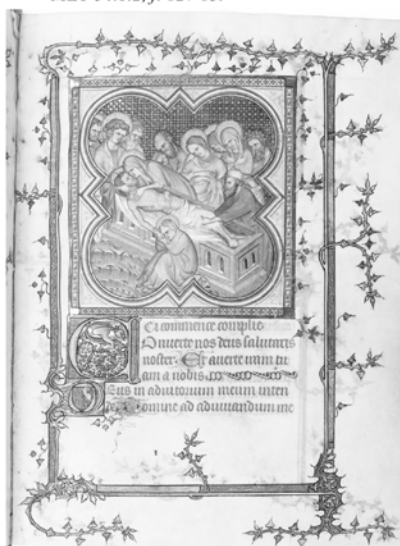 Ci commence complie
Onuerte nos deus salutaris
noster. Et auerte iram tu
am a nobis
Eus in adiutorium meum inten
de Domine ad adiuuandum me